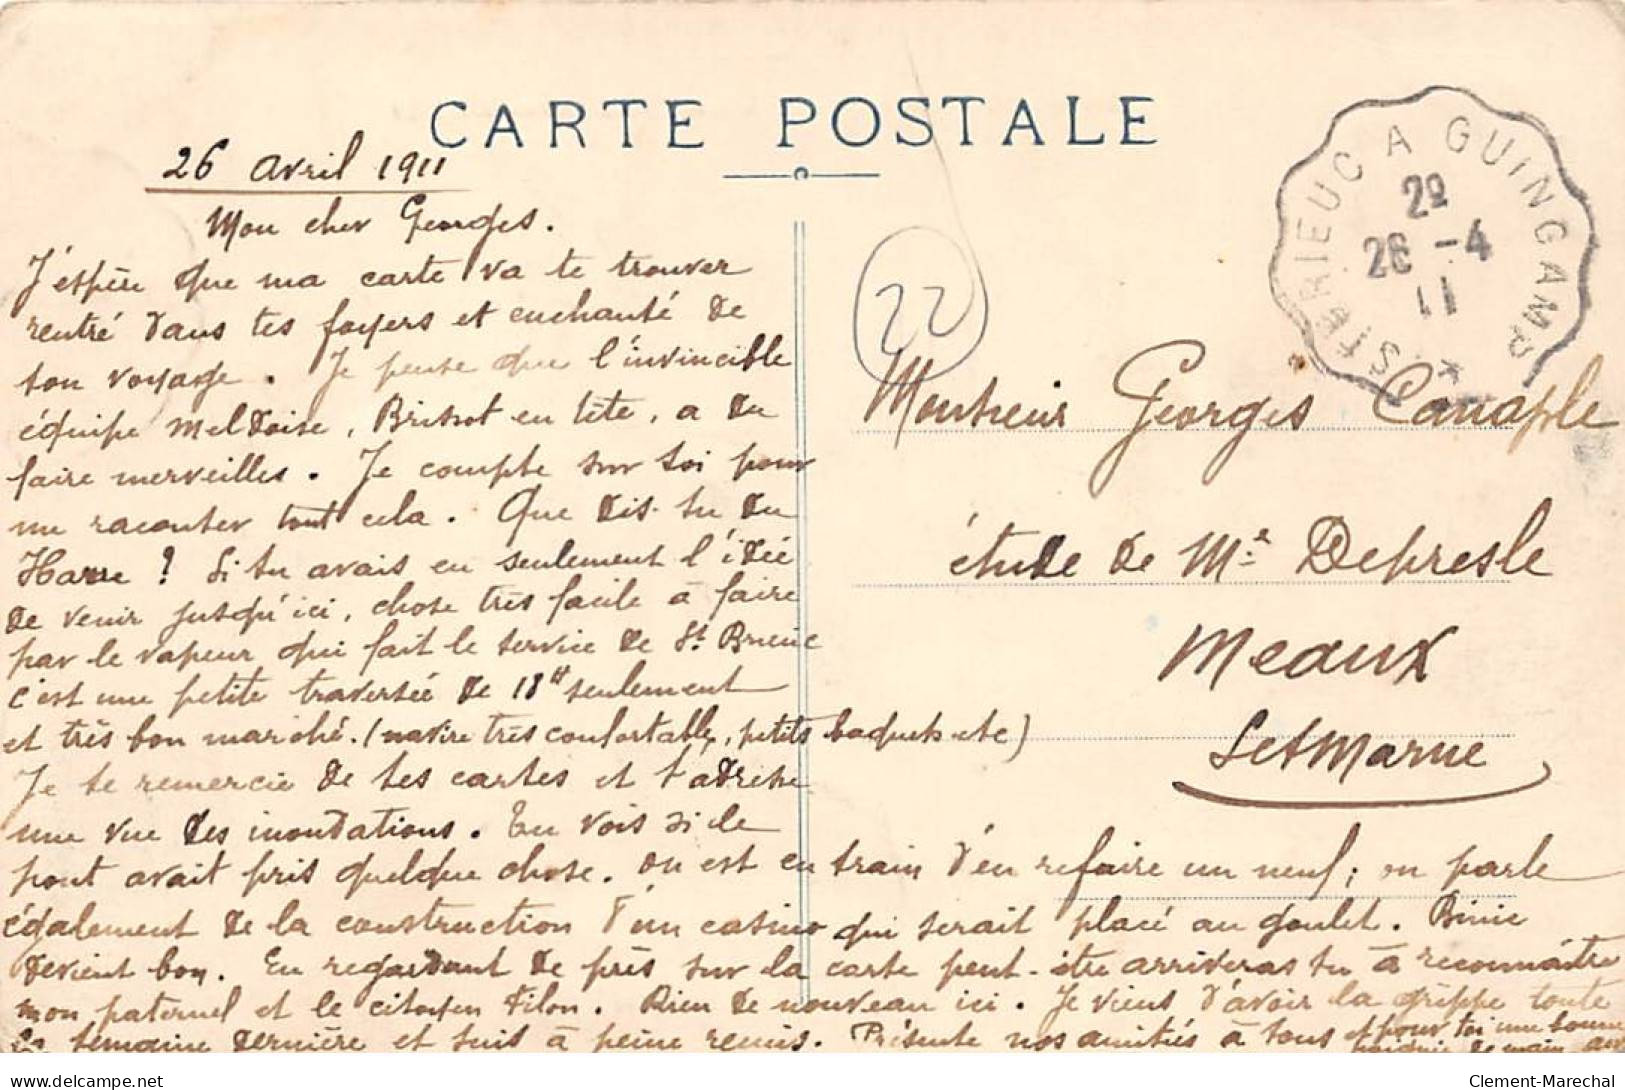 CARTE POSTALE
26 Avril 1911
Mon cher Georges.
J'espère que ma carte va te trouver
rentré dans tes foyers et enchanté de
ton voyage. Je pense que l'invincible
équipe Meldoise, Brissot en tête, a dû
faire merveilles. Je compte sur toi pour
me raconter tout cela. Que dis-tu du
Havre ? Si tu avais eu seulement l'idée
de venir jusqu'ici, chose très facile à faire
par le vapeur qui fait le service de St Brieuc
c'est une petite traversée de 18 H seulement
et très bon marché. (navire très confortable, petits baquets etc)
Je te remercie de tes cartes et t'adresse
une vue des inondations. Tu vois si le
pont avait pris quelque chose. On est en train d'en refaire un neuf ; on parle
également de la construction d'un casino qui serait placé au goulet. Binic
devient bon. En regardant de près sur la carte peut-être arriveras tu à reconnaître
mon paternel et le citoyen Filon. Rien de nouveau ici. Je viens d'avoir la grippe toute
la semaine dernière et suis à peine remis. Présente nos amitiés à tous et pour toi une bonne
poignée de main
ST BRIEUC A GUINGAMP *
2º
26 -4
11
22
Monsieur Georges Canaple
étude de Me Depresle
Meaux
S et Marne
Clement-Marechal
delcampe.net